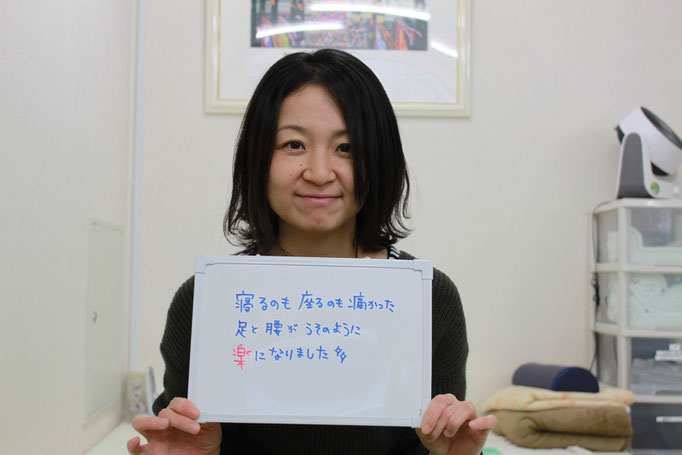 寝るのも 座るのも 痛かった
足と腰が うそのように
楽になりました